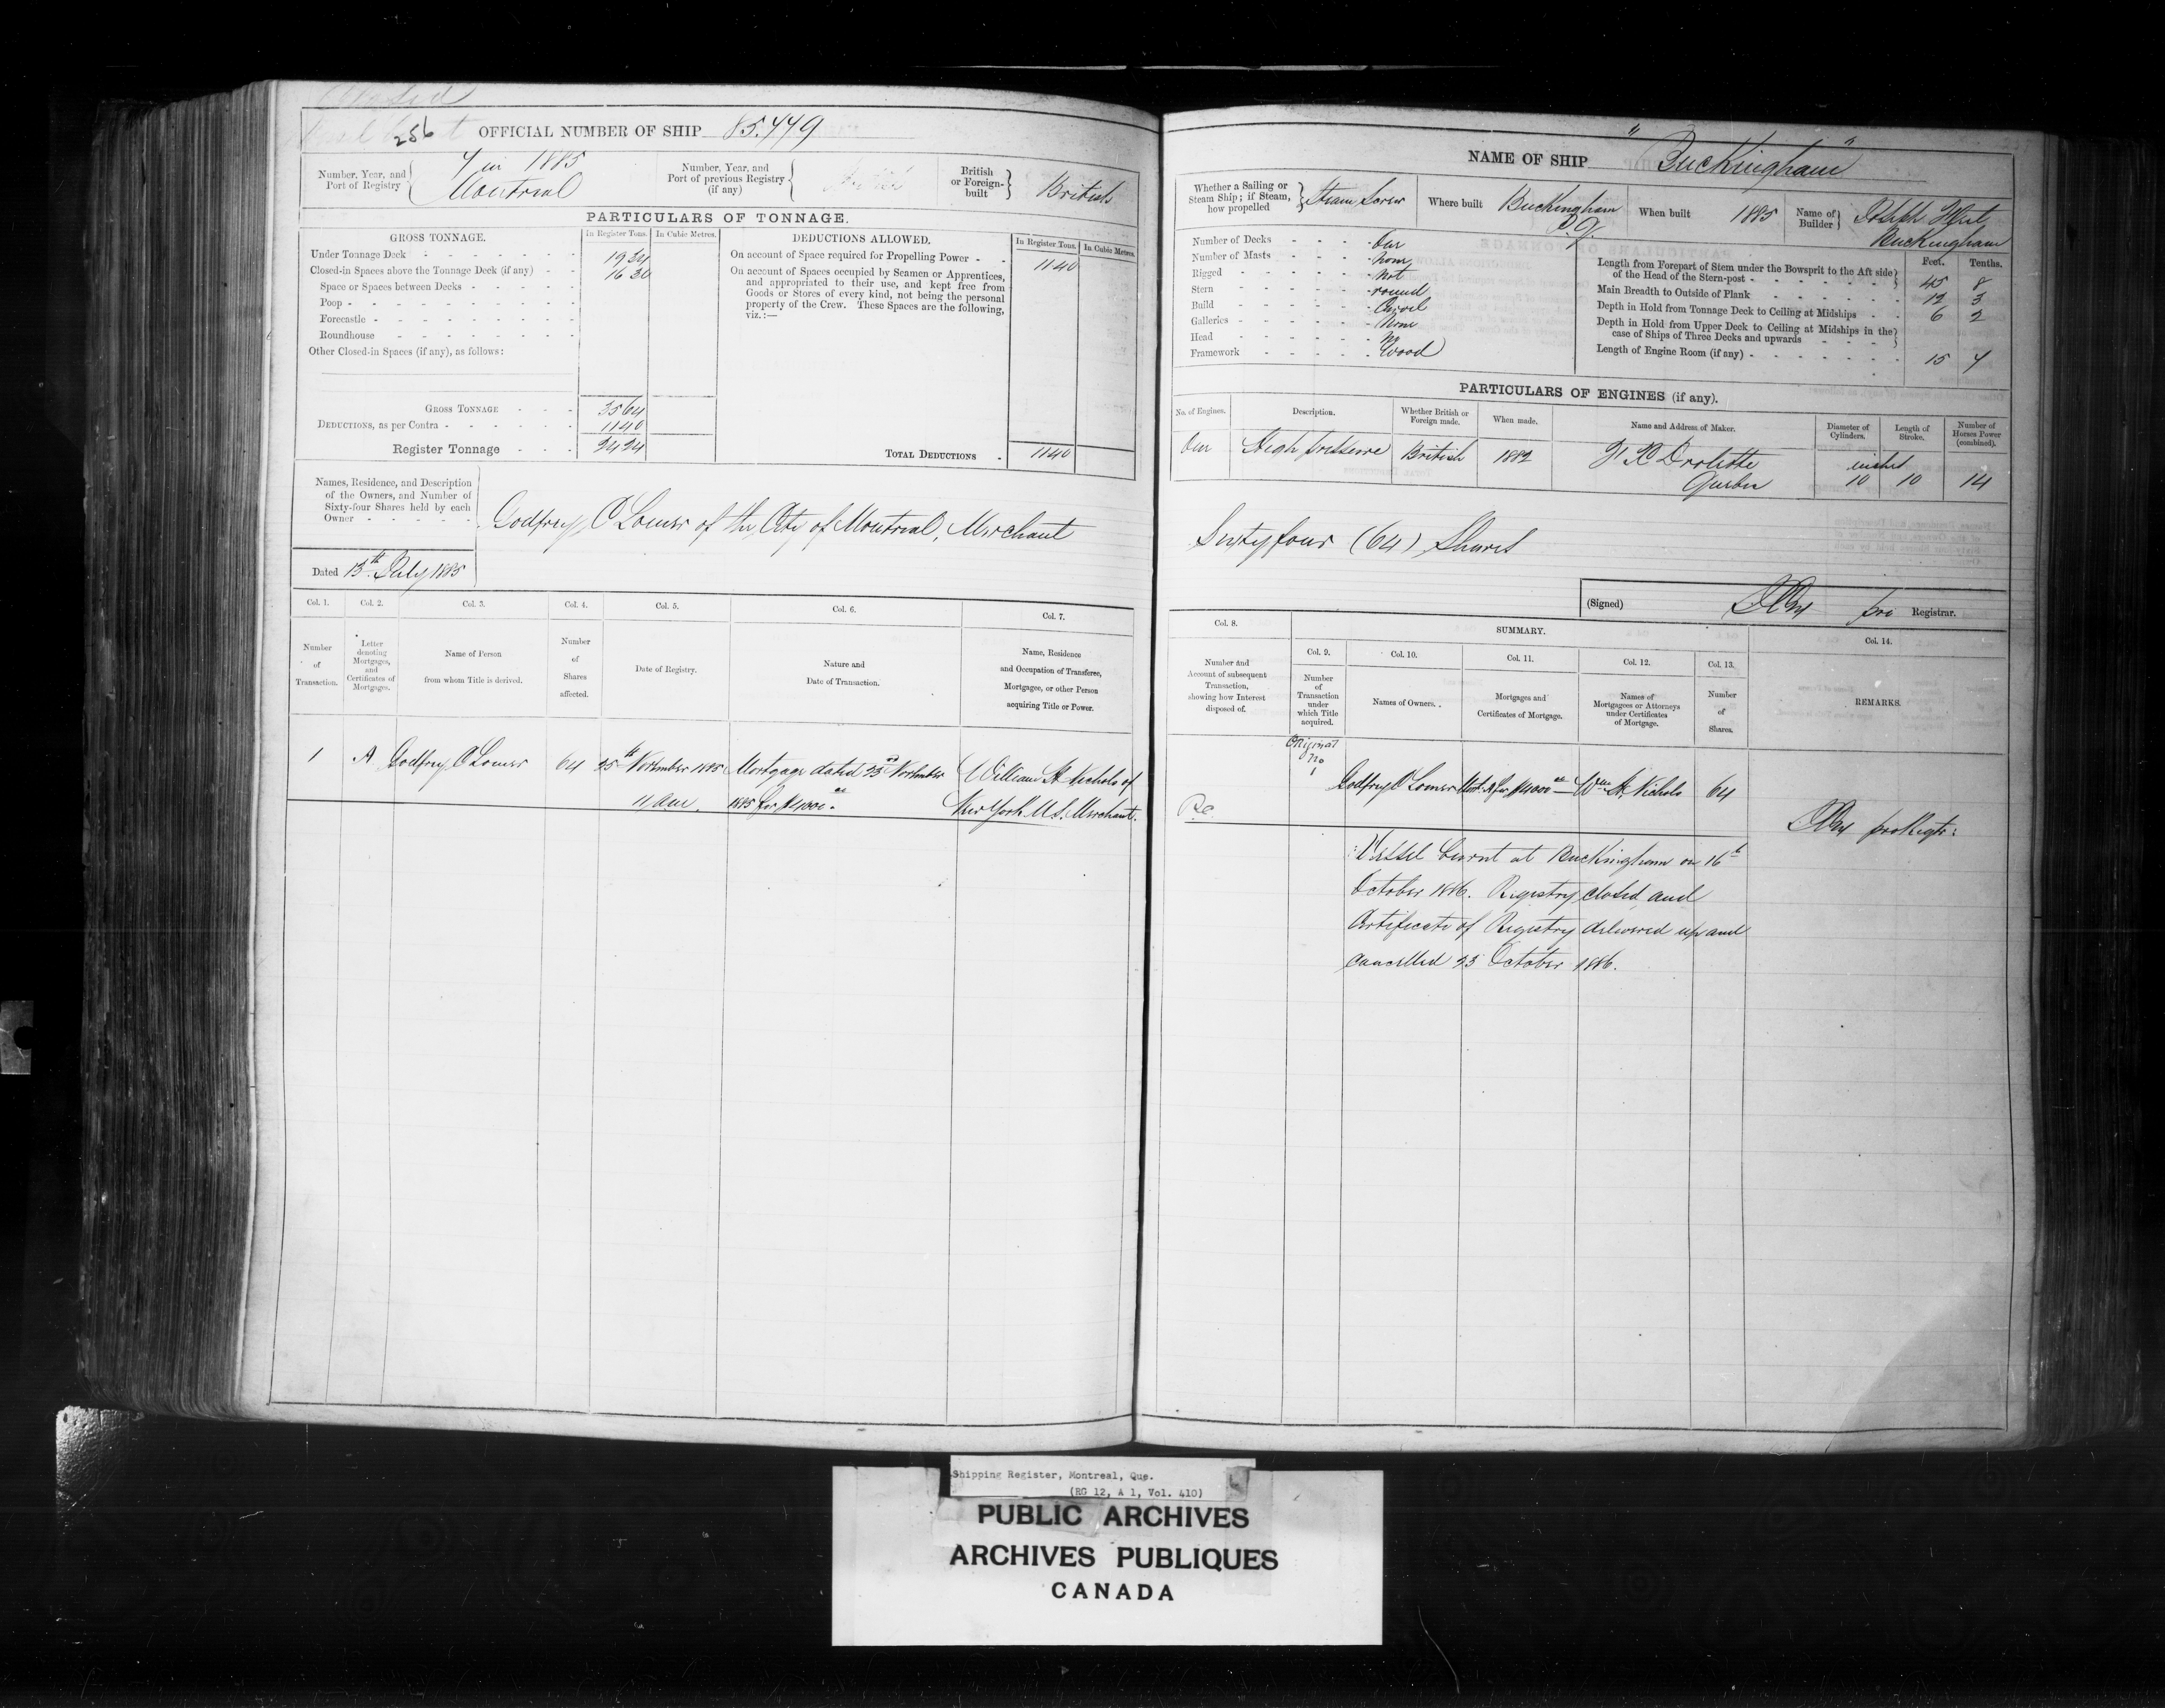 Closed
256
OFFICIAL NUMBER OF SHIP 85.449
Number, Year, and Port of Registry
4 in 1885
Montreal
Number, Year, and Port of previous Registry (if any)
British or Foreign-built
British
PARTICULARS OF TONNAGE.
GROSS TONNAGE.
In Register Tons.
In Cubic Metres.
Under Tonnage Deck 19 34
Closed-in Spaces above the Tonnage Deck (if any) 16 30
Space or Spaces between Decks
Poop
Forecastle
Roundhouse
Other Closed-in Spaces (if any), as follows:
GROSS TONNAGE 35 64
DEDUCTIONS, as per Contra 11 40
Register Tonnage 24 24
DEDUCTIONS ALLOWED.
In Register Tons.
In Cubic Metres.
On account of Space required for Propelling Power 11 40
On account of Spaces occupied by Seamen or Apprentices,
and appropriated to their use, and kept free from
Goods or Stores of every kind, not being the personal
property of the Crew. These Spaces are the following,
viz.:—
TOTAL DEDUCTIONS 11 40
Names, Residence, and Description
of the Owners, and Number of
Sixty-four Shares held by each
Owner
Godfrey C Lomer of the City of Montreal, Merchant
Dated 13th July 1885
Col. 1.
Number of Transaction.
Col. 2.
Letter denoting Mortgages, and Certificates of Mortgages.
Col. 3.
Name of Person from whom Title is derived.
Col. 4.
Number of Shares affected.
Col. 5.
Date of Registry.
Col. 6.
Nature and Date of Transaction.
Col. 7.
Name, Residence and Occupation of Transferee, Mortgagee, or other Person acquiring Title or Power.
1 A Godfrey C Lomer 64 25th November 1885 Mortgage dated 23rd November William H Nichols of
11 am. 1885 for $4000.00 New York U.S. Merchant.
NAME OF SHIP "Buckingham"
Whether a Sailing or Steam Ship; if Steam, how propelled
Steam Screw
Where built
Buckingham
P.Q.
When built
1885
Name of Builder
Joseph
Buckingham
Number of Decks One
Number of Masts None
Rigged Not
Stern round
Build Carvel
Galleries None
Head No
Framework Wood
Feet. Tenths.
Length from Forepart of Stem under the Bowsprit to the Aft side
of the Head of the Stern-post 45 8
Main Breadth to Outside of Plank 12 3
Depth in Hold from Tonnage Deck to Ceiling at Midships 6 2
Depth in Hold from Upper Deck to Ceiling at Midships in the
case of Ships of Three Decks and upwards
Length of Engine Room (if any) 15 4
PARTICULARS OF ENGINES (if any).
No. of Engines.
Description.
Whether British or Foreign made.
When made.
Name and Address of Maker.
Diameter of Cylinders.
Length of Stroke.
Number of Horses Power (combined).
One High pressure British 1882 Drolette
Quebec
inches
10 10 14
Sixty four (64) Shares
(Signed) pro Registrar.
Col. 8.
Number and Account of subsequent Transaction, showing how Interest disposed of.
SUMMARY.
Col. 9.
Number of Transaction under which Title acquired.
Col. 10.
Names of Owners.
Col. 11.
Mortgages and Certificates of Mortgage.
Col. 12.
Names of Mortgagees or Attorneys under Certificates of Mortgage.
Col. 13.
Number of Shares.
Col. 14.
REMARKS.
Original
No
1
Godfrey C Lomer Mort. A for $4000.00 Wm H. Nichols 64
R.C.
pro Regtr:
Vessel burnt at Buckingham on 16th
October 1886. Registry closed and
Certificate of Registry delivered up and
cancelled 23 October 1886.
Shipping Register, Montreal, Que.
(RG 12, A 1, Vol. 410)
PUBLIC ARCHIVES
ARCHIVES PUBLIQUES
CANADA